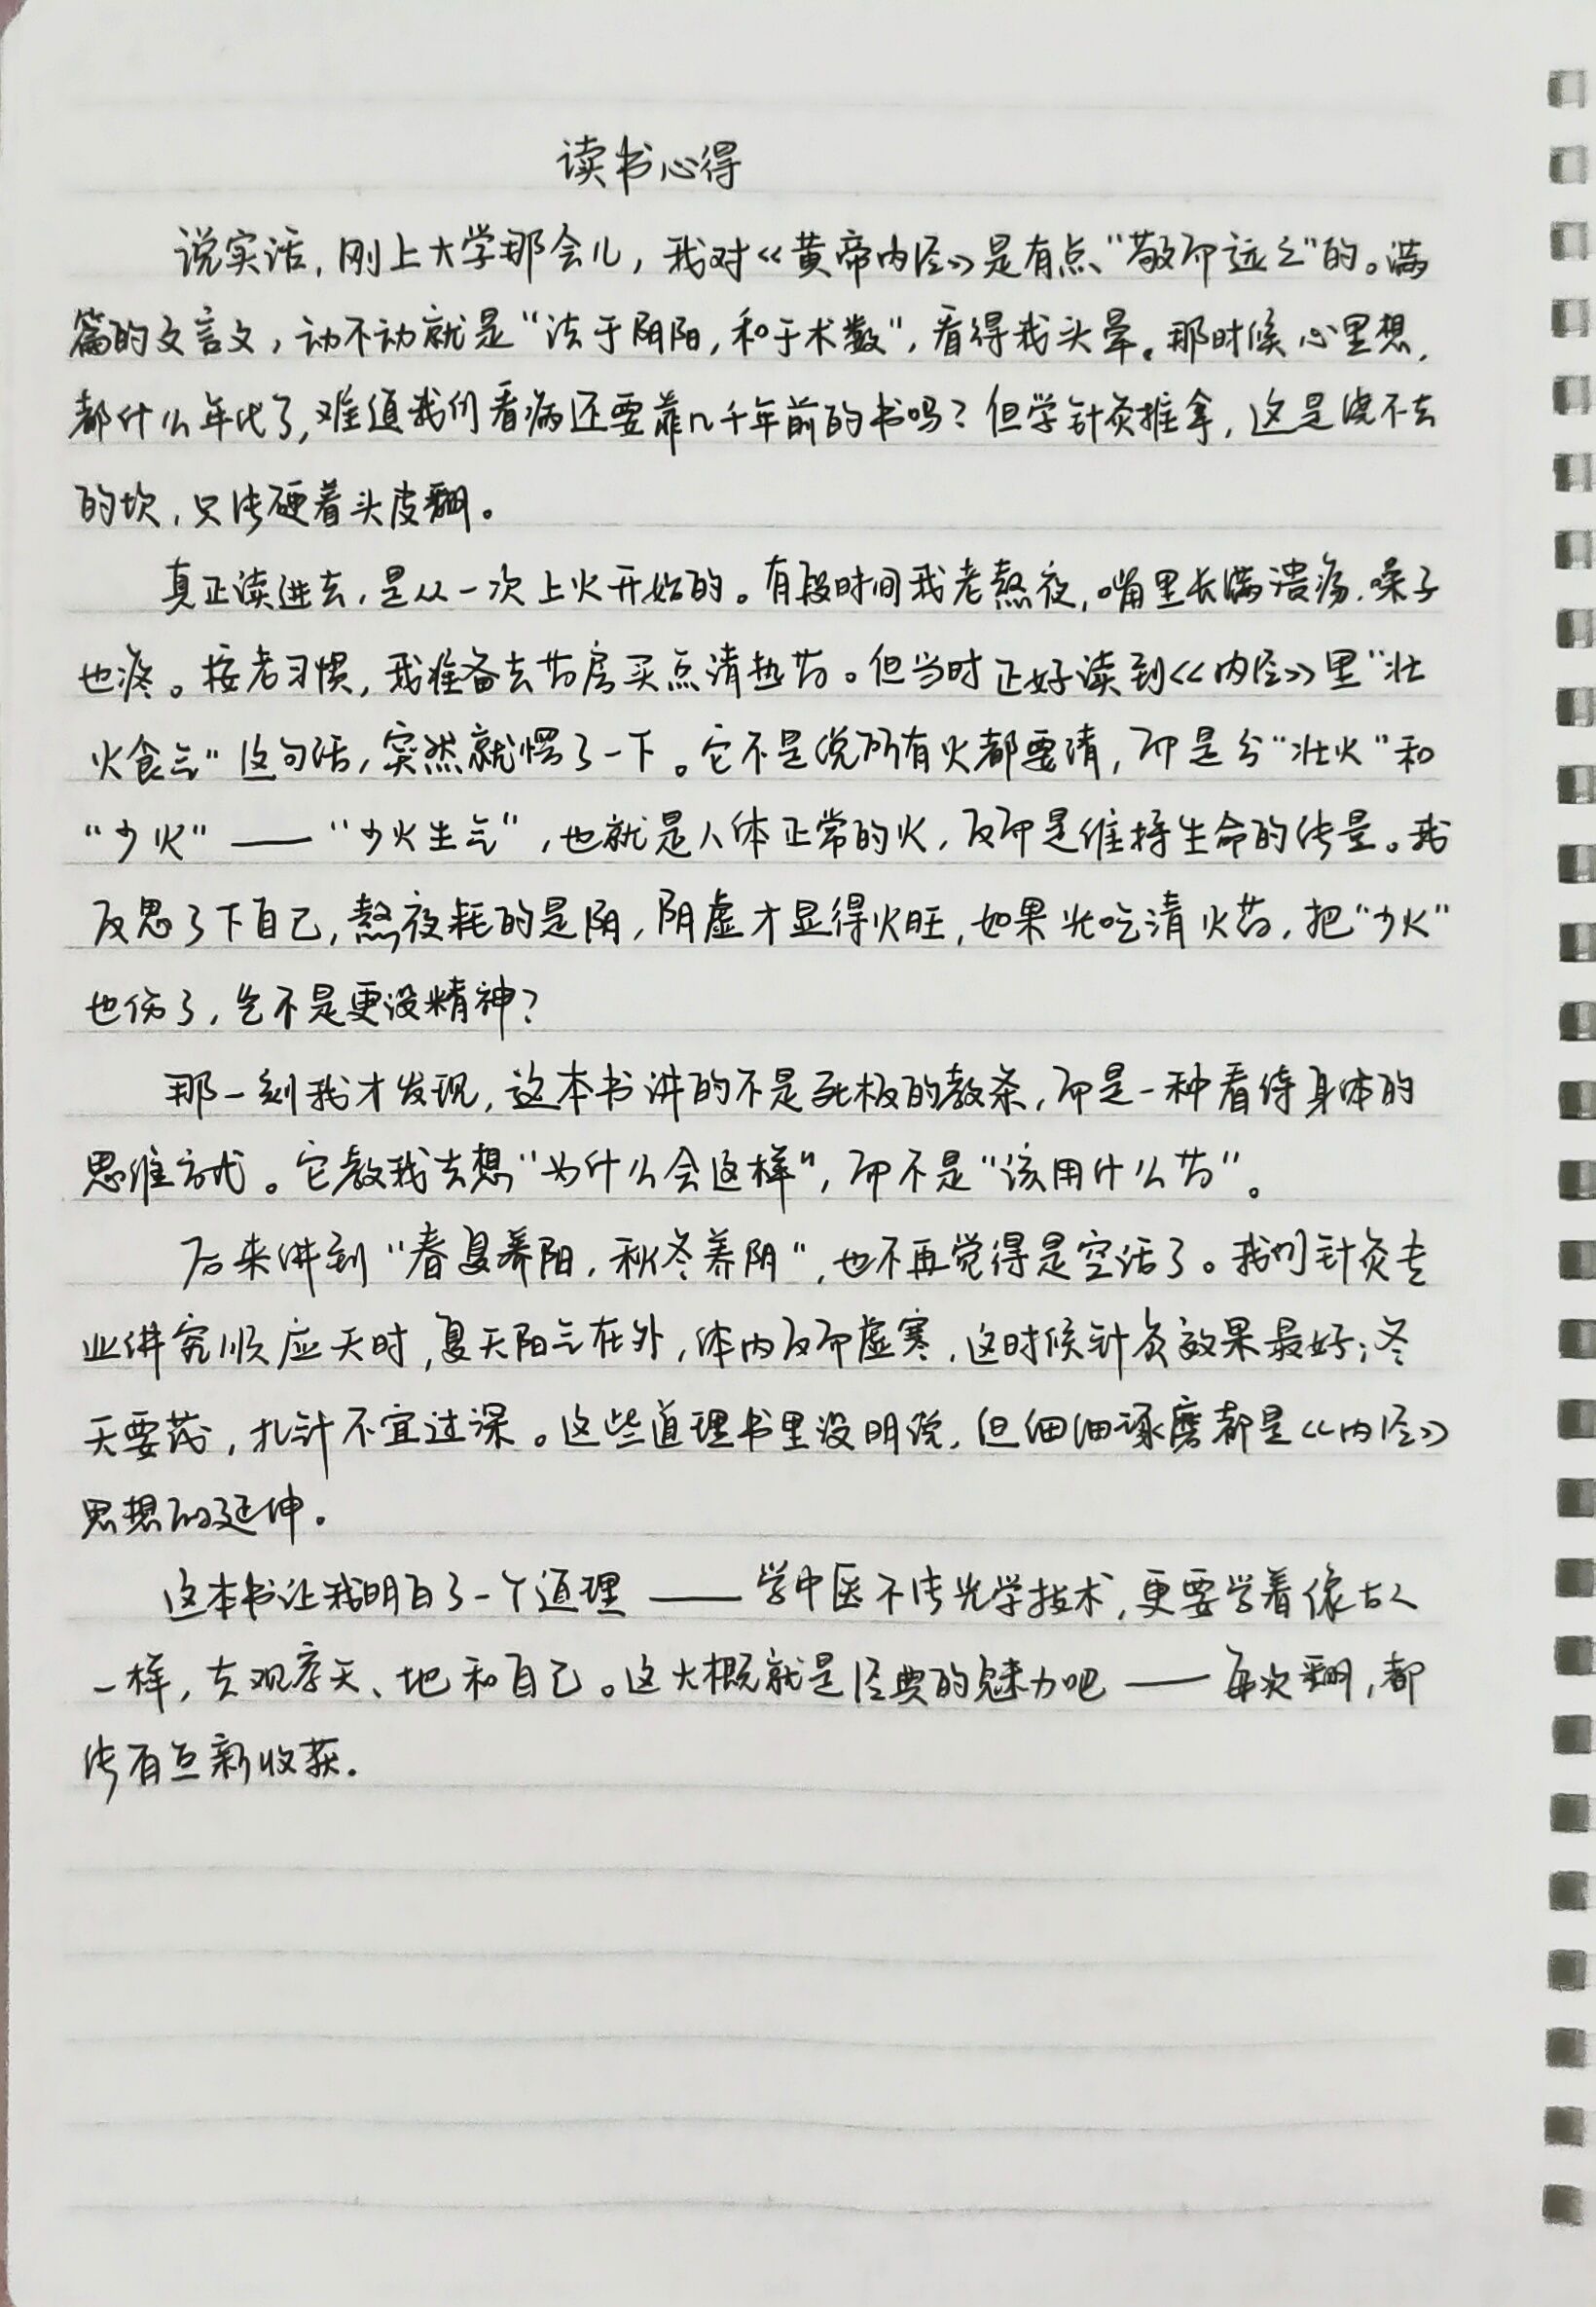 读书心得
说实话,刚上大学那会儿,我对《黄帝内经》是有点“敬而远之”的。满
篇的文言文,动不动就是“法于阴阳,和于术数”,看得我头晕。那时候心里想,
都什么年代了,难道我们看病还要靠几千年前的书吗?但学针灸推拿,这是绕不去
的坎,只能硬着头皮翻。
真正读进去,是从一次上火开始的。有段时间我老熬夜,嘴里长满溃疡,嗓子
也疼。按老习惯,我准备去药房买点清热药。但当时正好读到《内经》里“壮
火食气”这句话,突然就愣了一下。它不是说所有火都要清,而是分“壮火”和
“少火”——“少火生气”,也就是人体正常的火,反而是维持生命的能量。我
反思了下自己,熬夜耗的是阴,阴虚才显得火旺,如果光吃清火药,把“少火”
也伤了,岂不是更没精神?
那一刻我才发现,这本书讲的不是死板的教条,而是一种看待身体的
思维方式。它教我去想“为什么会这样”,而不是“该用什么药”。
后来讲到“春夏养阳,秋冬养阴”,也不再觉得是空话了。我们针灸专
业讲究顺应天时,夏天阳气在外,体内反而虚寒,这时候针灸效果最好;冬
天要藏,扎针不宜过深。这些道理书里没明说,但细细琢磨都是《内经》
思想的延伸。
这本书让我明白了一个道理——学中医不能光学技术,更要学着像古人
一样,去观察天、地和自己。这大概就是经典的魅力吧——每次翻,都
能有点新收获.